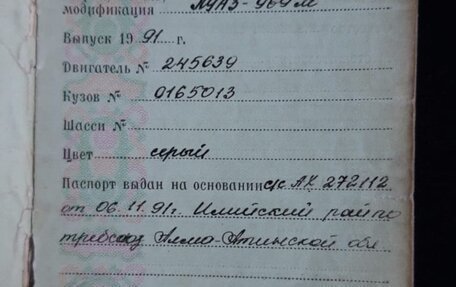 модификация ЛУАЗ-969М
Выпуск 1991 г.
Двигатель № 245639
Кузов № 0165013
Шасси №
Цвет серый
Паспорт выдан на основании с/с АХ 272112
от 06.11.91г. Илийский райпо
требсоюз Алма-Атинской обл